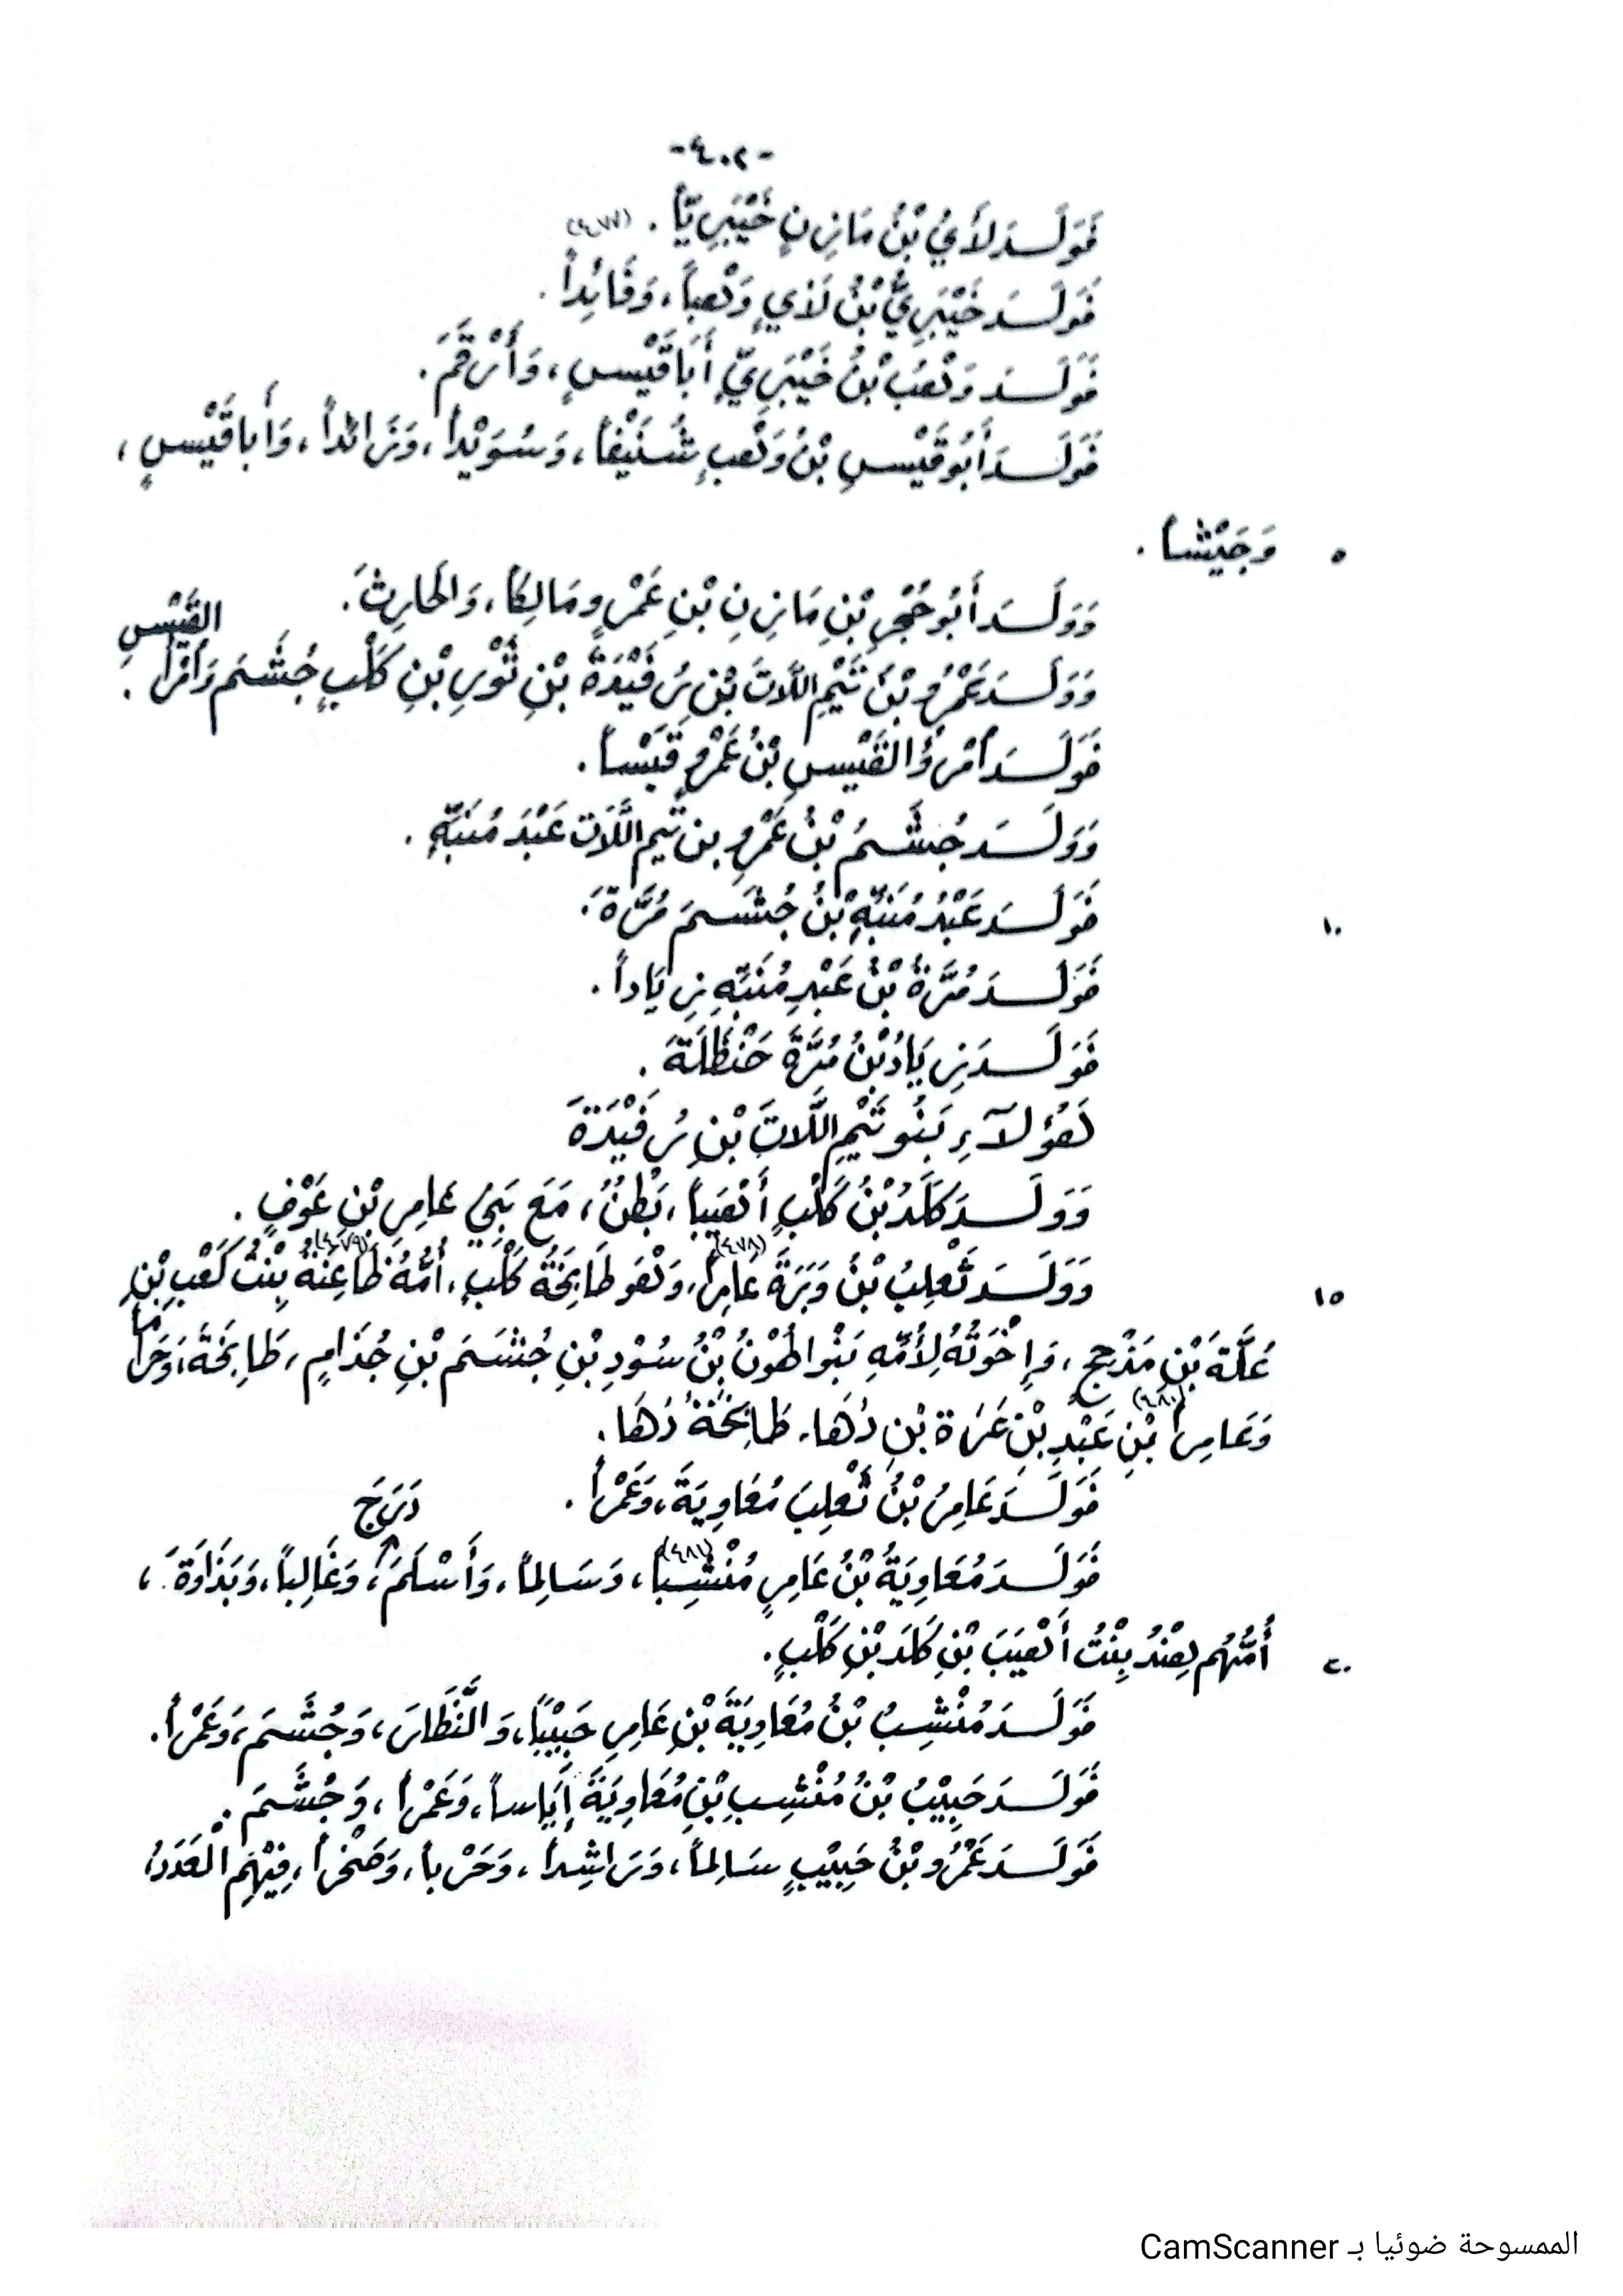 -٤٠٢-
فَوَلَـدَ لَأْيُ بْنُ مَازِنٍ خَيْبَرِيّاً . (٤٧٧)
فَوَلَـدَ خَيْبَرِيُّ بْنُ لَأْيٍ وَهْباً، وَقَائِداً .
فَوَلَـدَ وَهْبُ بْنُ خَيْبَرِيٍّ أَبَا قَيْسٍ، وَأَرْقَمَ .
فَوَلَـدَ أَبُو قَيْسِ بْنُ وَهْبٍ شُنَيْفاً، وَسُوَيْداً، وَزَائداً، وَأَبا قَيْسٍ،
٥ وَجَيْشاً .
وَوَلَـدَ أَبُو حُجْرِ بْنِ مَازِنِ بْنِ عَمْرٍو مَالِكاً، وَالحَارِثَ .
وَوَلَـدَ عَمْرُو بْنُ تَيْمِ اللَّاتَ بْنِ رُفَيْدَةَ بْنِ ثَوْرِ بْنِ كَلْبٍ جُشَـمَ وَامْرَأَ القَيْسِ .
فَوَلَـدَ امْرُؤُ القَيْسِ بْنُ عَمْرٍو قَيْساً .
وَوَلَـدَ جُشَـمُ بْنُ عَمْرِو بن تَيم اللَّات عَبْدَ مُنَبِّهٍ .
١٠ فَوَلَـدَ عَبْدُ مُنَبِّهِ بْنُ جُشَـمَ مُرَّةَ .
فَوَلَـدَ مُرَّةُ بْنُ عَبْدِ مُنَبِّهِ زِيَاداً .
فَوَلَـدَ زِيَادُ بْنُ مُرَّةَ حَنْظَلَةَ .
هَؤُلآءِ بَنُو تَيْمِ اللَّاتَ بْنِ رُفَيْدَةَ
وَوَلَـدَ كَلَدُ بْنُ كَلْبٍ أَهْيَباً، بَطْنٌ، مَعَ بَنِي عَامِرِ بْنِ عَوْفٍ .
١٥ وَوَلَـدَ تَغْلِبُ بْنُ وَبَرَةَ عَامِراً (٤٧٨)، وَهْوَ طَابِخَةُ كَلْبٍ، أُمُّهُ ظَاعِنَةُ (٤٧٩) بِنْتُ كَعْبِ بْنِ
عُلَّةَ بْنِ مَذْحِجٍ، وَإِخْوَتُهُ لِأُمِّهِ بَنُوا لْهُونُ بْنُ سُوْدِ بْنِ جُشَـمَ بْنِ جُذَامٍ، طَابِخَةَ، وَحَرَاماً
وَعَامِراً (٤٨٠) بْنِ عَبْدِ بْنِ عَرَاةَ بْنِ رُهَا، طَابِخَةُ رُهَا .
فَوَلَـدَ عَامِرُ بْنُ تَغْلِبَ مُعَاوِيَةَ، وَعَمْراً .
فَوَلَـدَ مُعَاوِيَةُ بْنُ عَامِرٍ مُنْشِباً (٤٨١)، وَسَالِماً، وَأَسْلَمَ، دَرَجَ وَغَالِباً، وَبَذَاوَةَ،
٢٠ أُمُّهُم هِنْدُ بِنْتُ أَهْيَبَ بْنِ كَلَدِ بْنِ كَلْبٍ .
فَوَلَـدَ مُنْشِبُ بْنُ مُعَاوِيَةَ بْنِ عَامِرٍ حَبِيْباً، وَالنَّظَّارَ، وَجُشَـمَ، وَعَمْراً .
فَوَلَـدَ حَبِيْبُ بْنُ مُنْشِبِ بْنِ مُعَاوِيَةَ إِيَاساً، وَعَمْراً، وَجُشَـمَ .
فَوَلَـدَ عَمْرُو بْنُ حَبِيْبٍ سَالِماً، وَرَاشِداً، وَحَرْباً، وَصَخْراً، فِيْهِمِ الْعَدَدُ،
الممسوحة ضوئيا بـ CamScanner